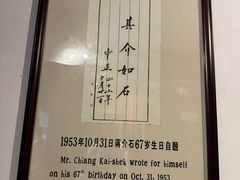 其介如石
中正
1953年10月31日蒋介石67岁生日自题
Mr. Chiang Kai-shek wrote for himself
on his 67th birthday on Oct. 31, 1953